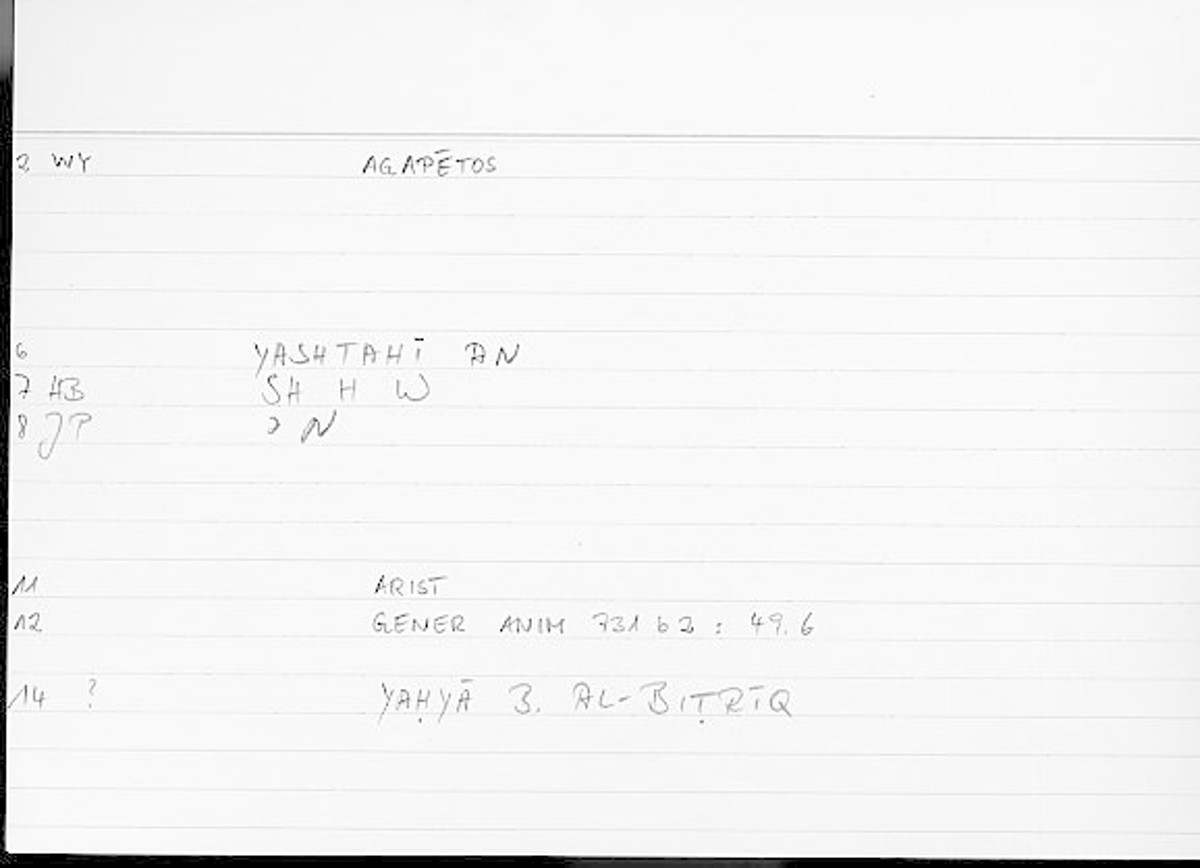 2 WY AGAPĒTOS
6 YASHTAHĪ AN
7 HB SH H W
8 JP ɔ N
11 ARIST
12 GENER ANIM 731 b 2 : 49.6
14 ? YAḤYĀ B. AL-BIṬRĪQ